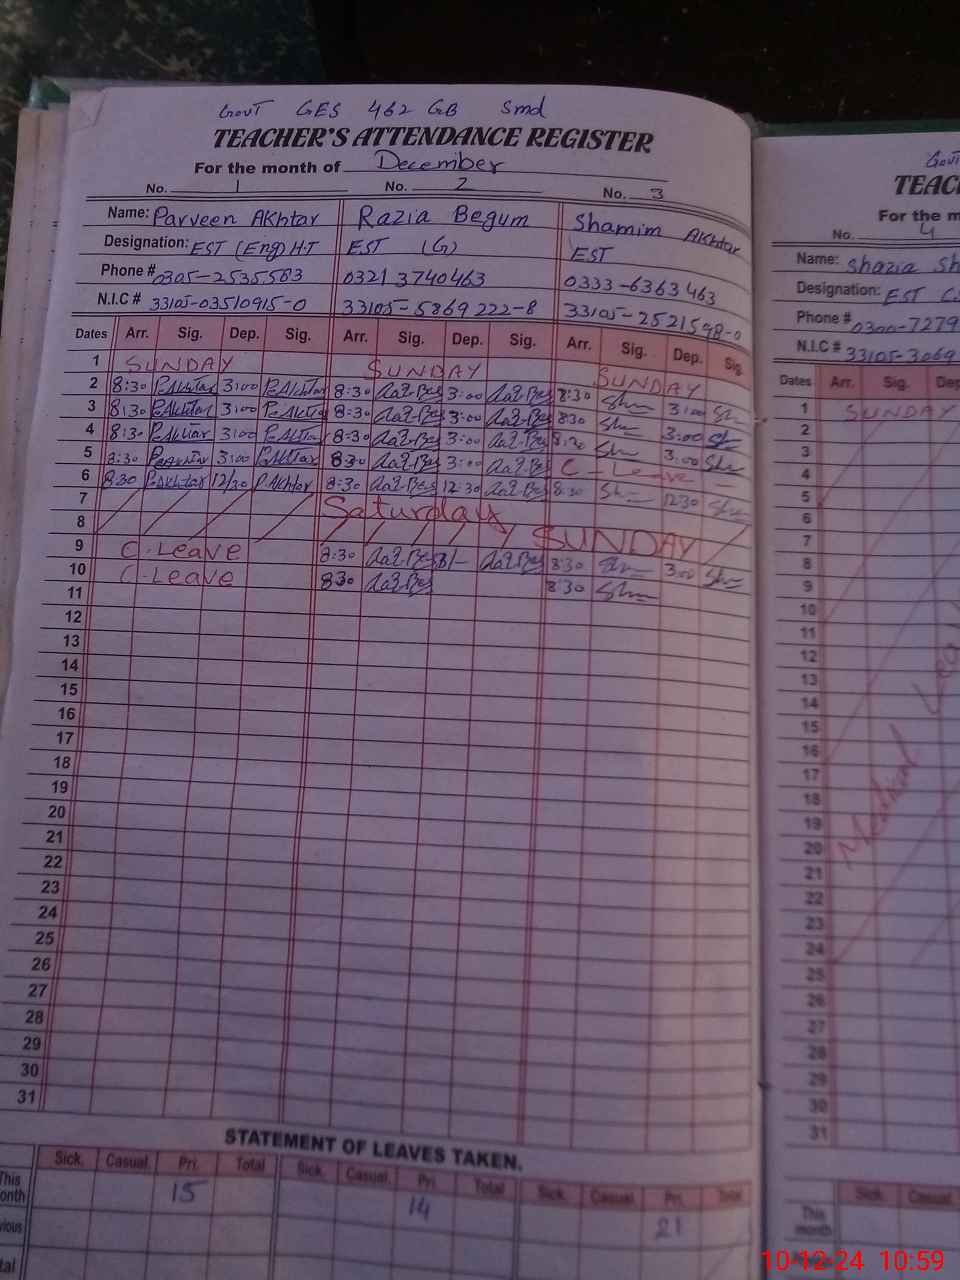 Govt GES 462 GB Smd
TEACHER'S ATTENDANCE REGISTER
For the month of December
No. 1 No. 2 No. 3
Name: Parveen Akhtar Razia Begum Shamim Akhtar
Designation: EST (Eng) H.T EST (G) EST
Phone # 0305-2535583 0321 3740463 0333-6363463
N.I.C # 33105-03510915-0 33105-5869222-8 33105-2521598-0
Dates Arr. Sig. Dep. Sig. Arr. Sig. Dep. Sig. Arr. Sig. Dep. Sig.
1 SUNDAY SUNDAY SUNDAY
2 8:30 P.Akhtar 3:00 P.Akhtar 8:30 3:00 8:30 3:00
3 8:30 P.Akhtar 3:00 P.Akhtar 8:30 3:00 8:30 3:00
4 8:30 P.Akhtar 3:00 P.Akhtar 8:30 3:00 8:30 3:00
5 8:30 P.Akhtar 3:00 P.Akhtar 8:30 3:00 C-Leave
6 8:30 P.Akhtar 12/30 P.Akhtar 8:30 12:30 8:30 1230
7 Saturday
8 SUNDAY
9 C.Leave 8:30 8:30 3:00
10 C.Leave 830 8:30
11
12
13
14
15
16
17
18
19
20
21
22
23
24
25
26
27
28
29
30
31
STATEMENT OF LEAVES TAKEN.
Sick. Casual. Pri. Total Sick. Casual. Pri. Total Sick. Casual. Pri. Total
This month 15 14 21
Govt
TEAC
For the m
No. 4
Name: Shazia Sh
Designation: EST
Phone # 0300-7279
N.I.C # 33105-3069
Dates Arr. Sig. Dep
1 SUNDAY
2
3
4
5
6
7
8
9
10
11
12
13
14
15
16
17
18
19
20
21
22
23
24
25
26
27
28
29
30
31
Medical Leav
Sick. Casual
This month
10-12-24 10:59